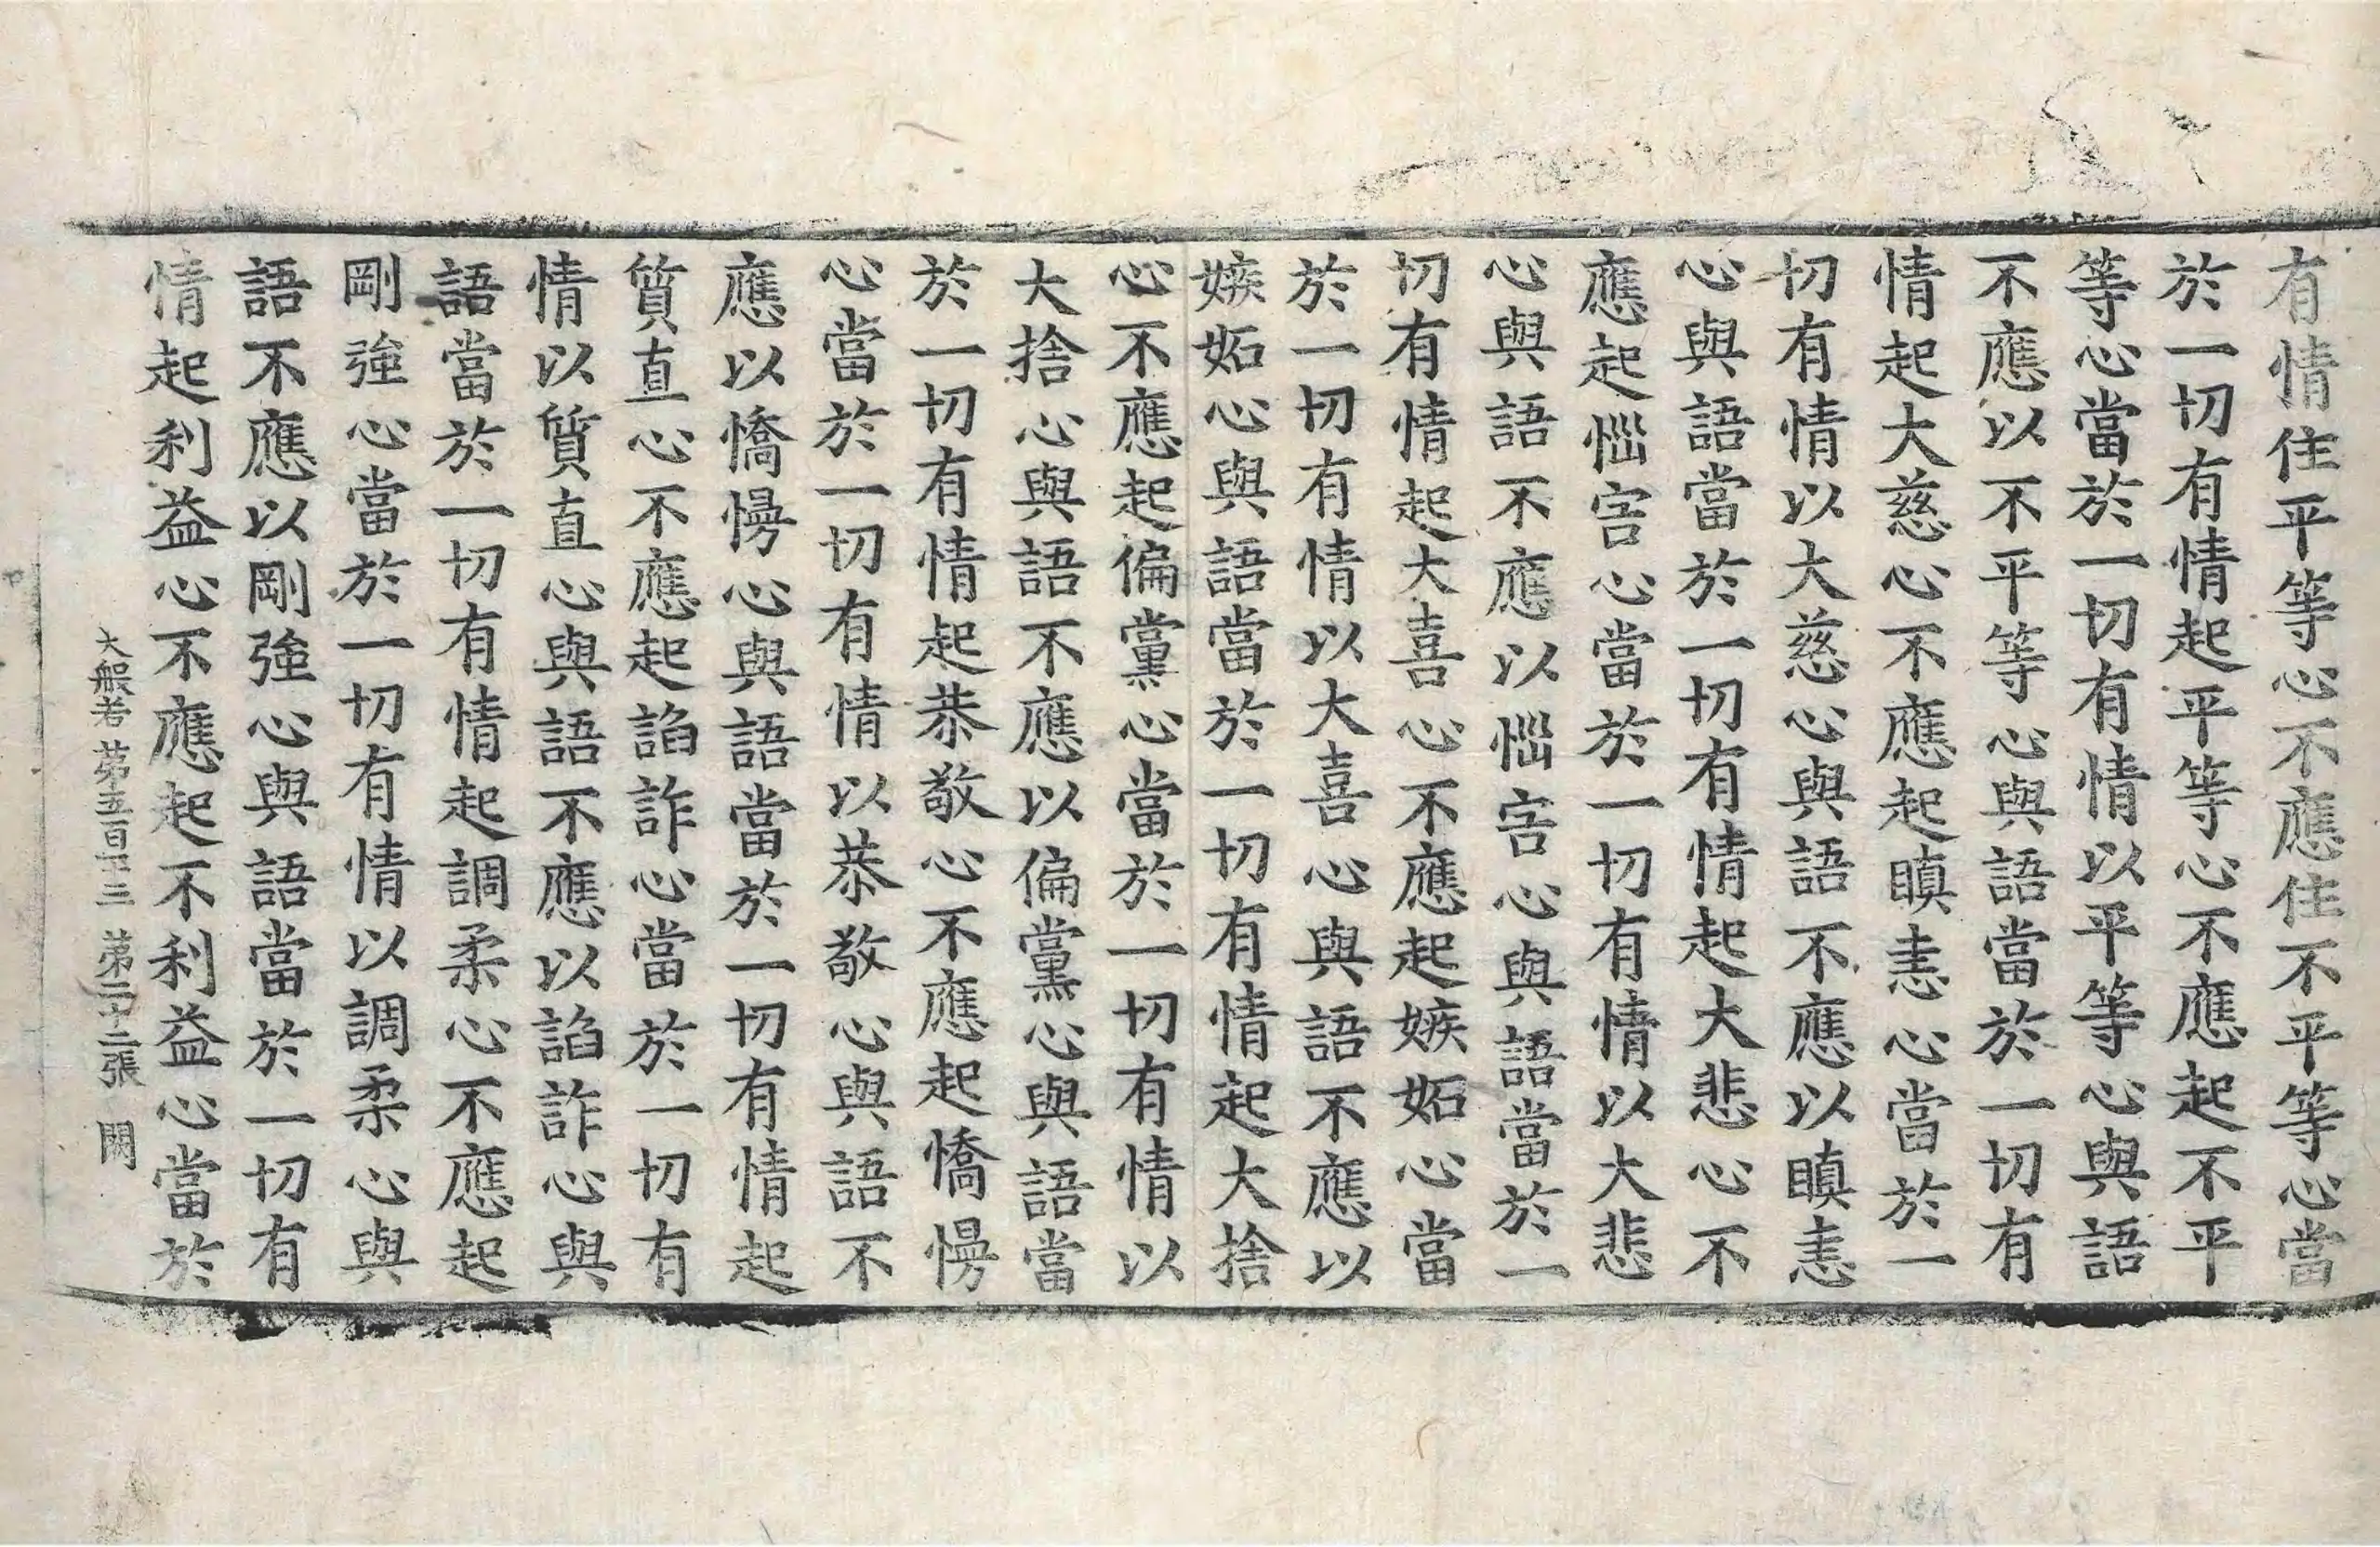 有情住平等心不應住不平等心當
於一切有情起平等心不應起不平
等心當於一切有情以平等心與語
不應以不平等心與語當於一切有
情起大慈心不應起瞋恚心當於一
切有情以大慈心與語不應以瞋恚
心與語當於一切有情起大悲心不
應起惱害心當於一切有情以大悲
心與語不應以惱害心與語當於一
切有情起大喜心不應起嫉妬心當
於一切有情以大喜心與語不應以
嫉妬心與語當於一切有情起大捨
心不應起偏黨心當於一切有情以
大捨心與語不應以偏黨心與語當
於一切有情起恭敬心不應起憍慢
心當於一切有情以恭敬心與語不
應以憍慢心與語當於一切有情起
質直心不應起諂詐心當於一切有
情以質直心與語不應以諂詐心與
語當於一切有情起調柔心不應起
剛強心當於一切有情以調柔心與
語不應以剛強心與語當於一切有
情起利益心不應起不利益心當於
大般若第五百十三 第二十二張 闕